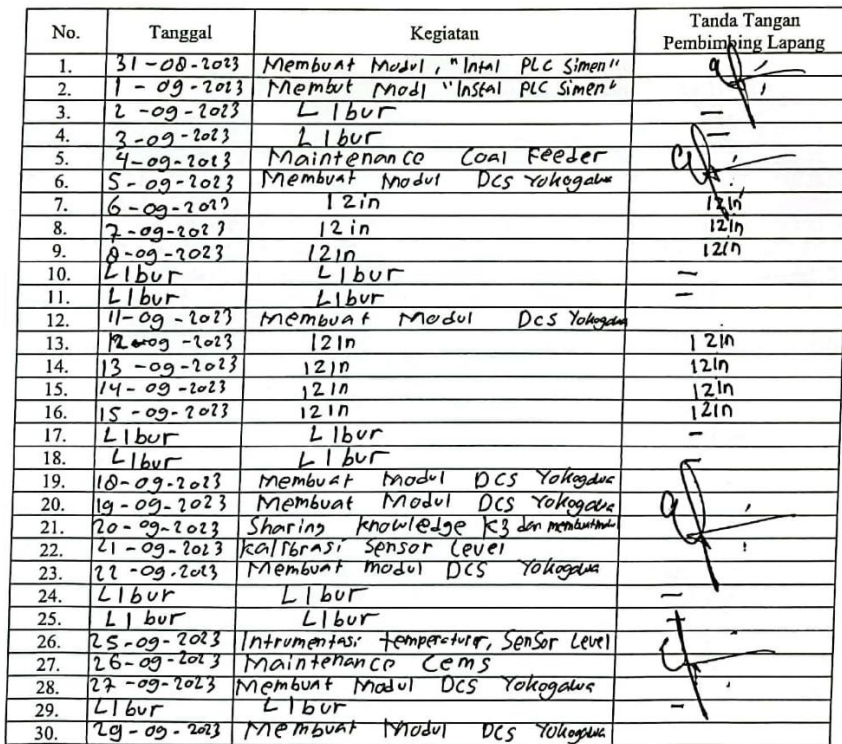 No. Tanggal Kegiatan Tanda Tangan Pembimbing Lapang
1. 31-08-2023 Membuat Modul, "Intal PLC Simen"
2. 1-09-2023 Membut Modl "Instal PLC Simen"
3. 2-09-2023 Libur -
4. 3-09-2023 Libur -
5. 4-09-2023 Maintenance Coal Feeder
6. 5-09-2023 Membuat Modul DCS Yokogawa
7. 6-09-2023 Izin Izin
8. 7-09-2023 Izin Izin
9. 8-09-2023 Izin Izin
10. Libur Libur -
11. Libur Libur -
12. 11-09-2023 Membuat Modul DCS Yokogawa
13. 12-09-2023 Izin Izin
14. 13-09-2023 Izin Izin
15. 14-09-2023 Izin Izin
16. 15-09-2023 Izin Izin
17. Libur Libur -
18. Libur Libur -
19. 18-09-2023 Membuat Modul DCS Yokogawa
20. 19-09-2023 Membuat Modul DCS Yokogawa
21. 20-09-2023 Sharing knowledge K3 dan membuat modul
22. 21-09-2023 Kalibrasi Sensor Level
23. 22-09-2023 Membuat modul DCS Yokogawa
24. Libur Libur -
25. Libur Libur -
26. 25-09-2023 Intrumentasi temperatur, Sensor Level
27. 26-09-2023 Maintenance Cems
28. 27-09-2023 Membuat Modul DCS Yokogawa
29. Libur Libur -
30. 29-09-2023 Membuat Modul DCS Yokogawa